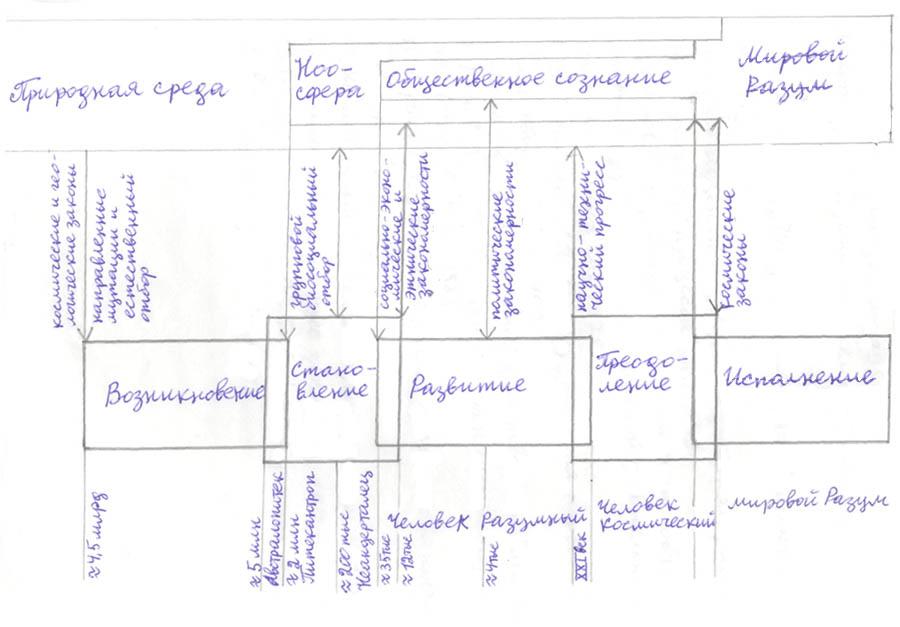 Природная среда
Ноо-
сфера
Общественное сознание
Мировой
Разум
космические и гео-
логические законы
направленные
мутации и
естественный
отбор
групповой
биосоциальный
отбор
социально-эконо-
мические и
этнические
закономерности
политические
закономерности
научно-техни-
ческий прогресс
космические
законы
Возникновение
Стано-
вление
Развитие
Преодо-
ление
Исполнение
≈4,5 млрд
≈5 млн
Австралопитек
≈2 млн
Питекантроп
≈200 тыс
Неандерталец
≈35тыс
≈12тыс
Человек Разумный
≈4тыс
XXI век
Человек
Космический
мировой Разум